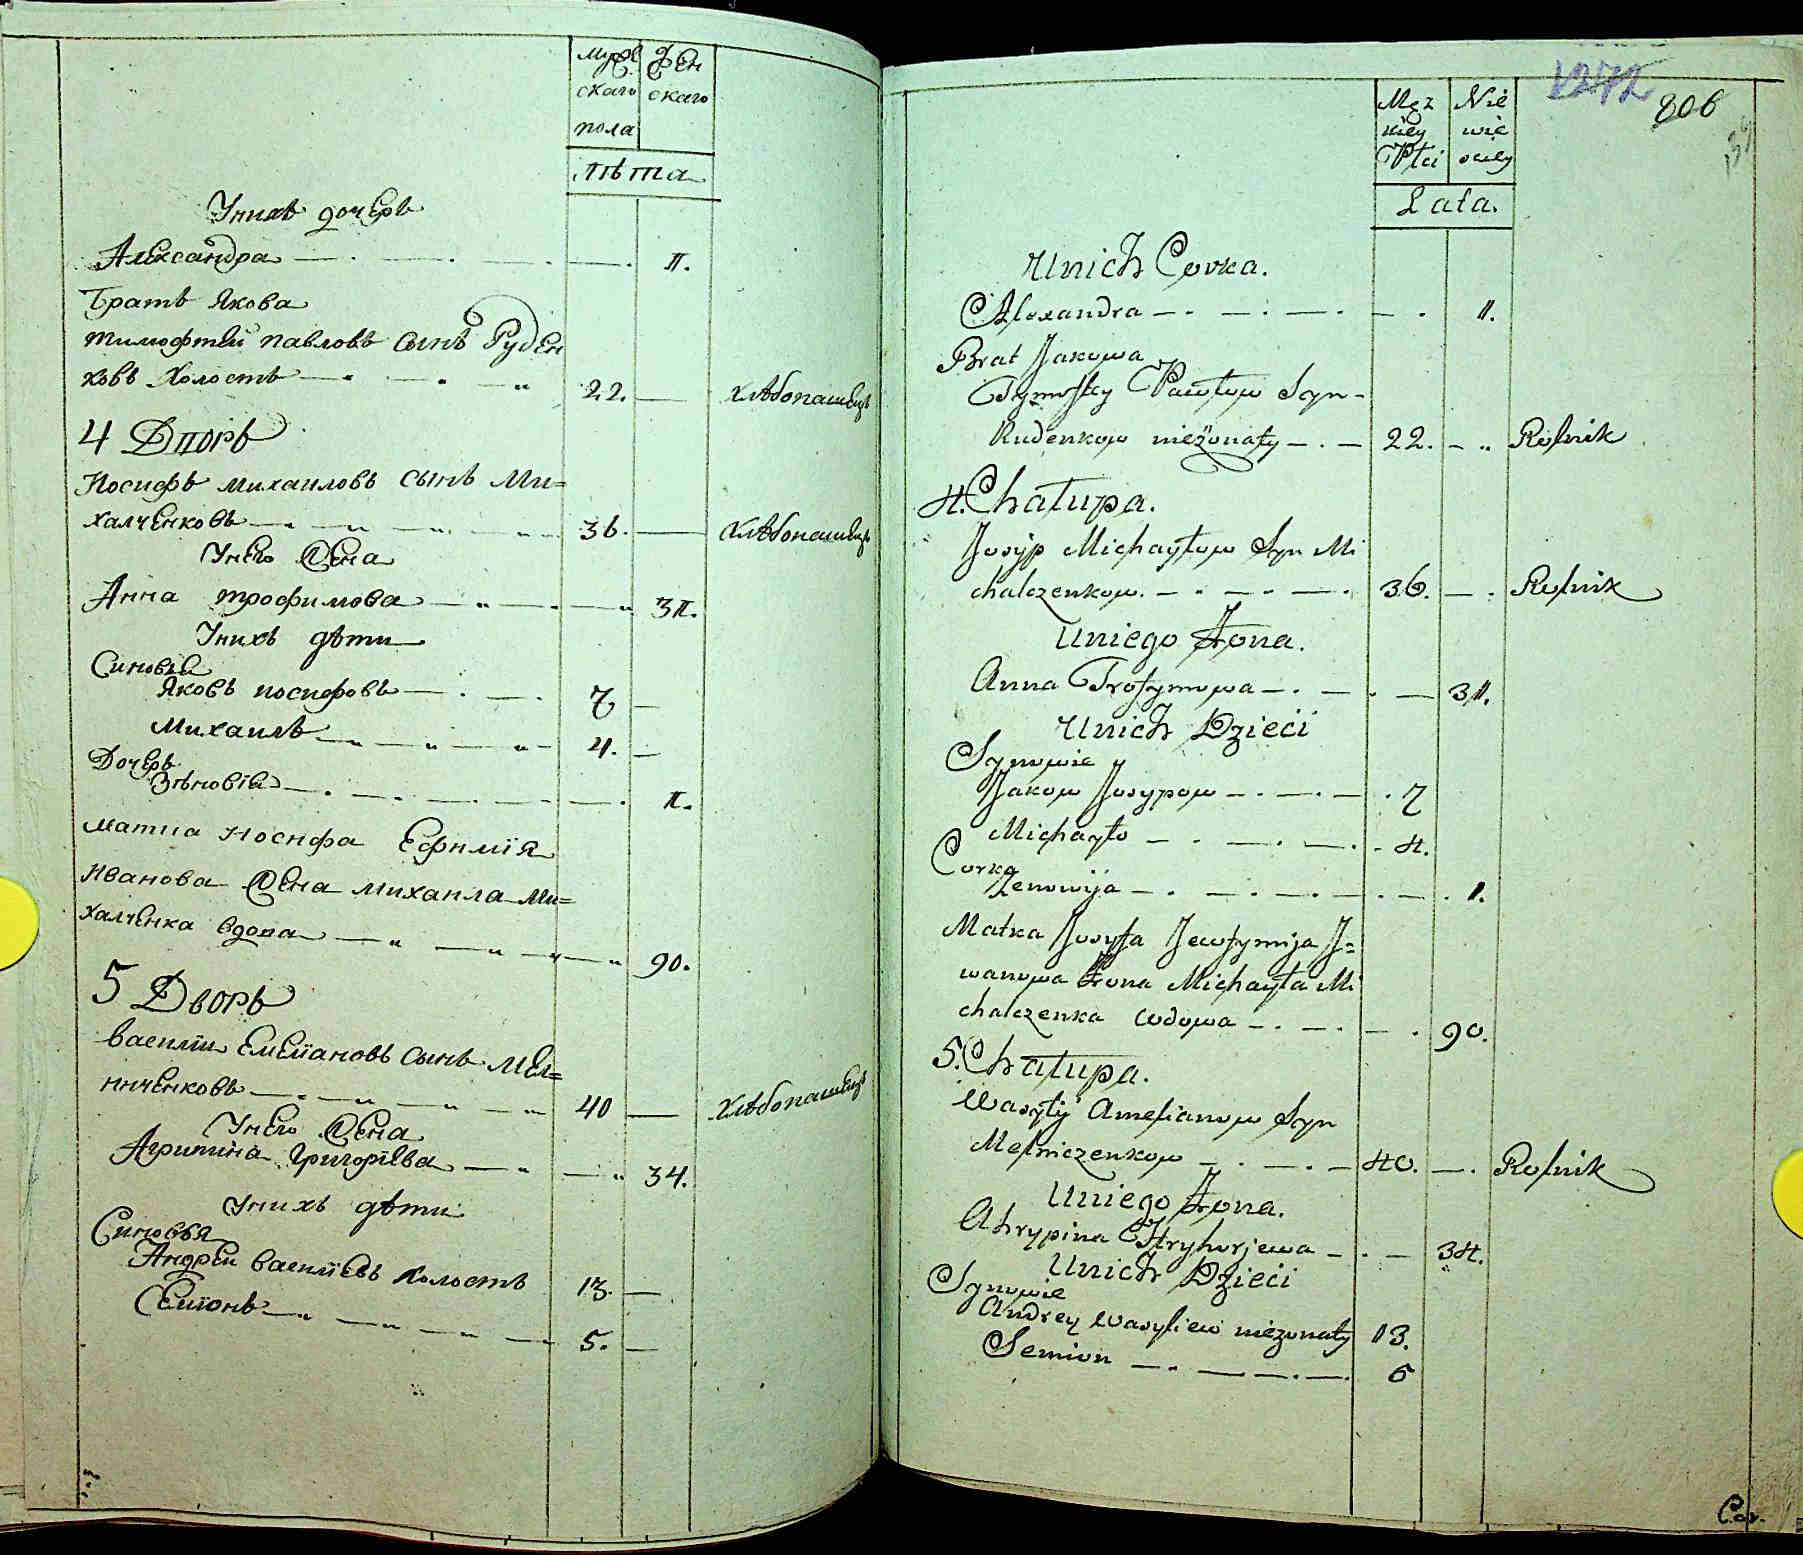 Мужескаго пола
Женскаго
Лѣта
Унихъ дочерь
Александра — . — . — . 11.
Братъ Якова
Тимофтей Павловъ сынъ Руден
ковъ Холостъ — . — . — „ 22. — хлѣбопашецъ
4 Дворъ
Иосифъ Михаиловъ сынъ Ми=
халченковъ — . — „ — „ 36. — хлѣбопашецъ
Унего Жена
Анна Трофимова — „ — . — „ 31.
Унихъ дѣти
Синовья
Яковъ иосифовъ — . — . 7 —
Михаилъ — „ — „ — „ — 4. —
Дочерь
Зѣновія — . — . — . — . 1.
Матка Иосифа Ефимія
Иванова Жена Михаила Ми=
халченка вдова — „ — „ — „ — „ 90.
5 Дворъ
Василіи Емеліановъ сынъ Мел=
ниченковъ — . — „ — „ — „ 40 — хлѣбопашецъ
Унего Жена
Агрипина Григоріева — „ — „ 34.
Унихъ дѣти
Синовья
Андреи Василіевъ холостъ 13. —
Семионъ — „ — „ — „ — 5. —
1272
806
Męzkiey Płci
Niewiesciey
Lata.
Unich Corka.
Alexandra — . — . — . — . 11.
Brat Jakowa
Tymofiey Pawłow Syn -
Rudenkow nieżonaty — . — 22. - „ Rolnik
4. Chałupa.
Josyp Michayłow Syn Mi
chalczenkow. — . — . — . 36. — . Rolnik
Uniego Żona.
Anna Trofymowa — . — . — 31.
Unich Dzieci
Synowie
Jakow Josypow — . — . — . 7
Michayło — . — . — . - 4.
Corka
Zenowija — . — . — . — . 1.
Matka Josyfa Jewfymija J=
wanowa Żona Michayła Mi
chalczenka wdowa — . — . — . 90.
5. Chałupa.
Wasyly Amelianow Syn
Melniczenkow — . — . — 40. — . Rolnik
Uniego Żona.
Ahrypina Hryhorjewa — . — 34.
Unich Dzieci
Synowie
Andrey Wasyliew nieżonaty 13.
Semion — . — . — . 5
Cor.